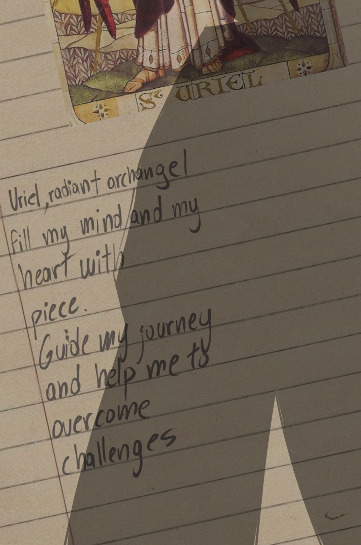 St URIEL
Uriel, radiant archangel
fill my mind and my
heart with
piece.
Guide my journey
and help me to
overcome
challenges